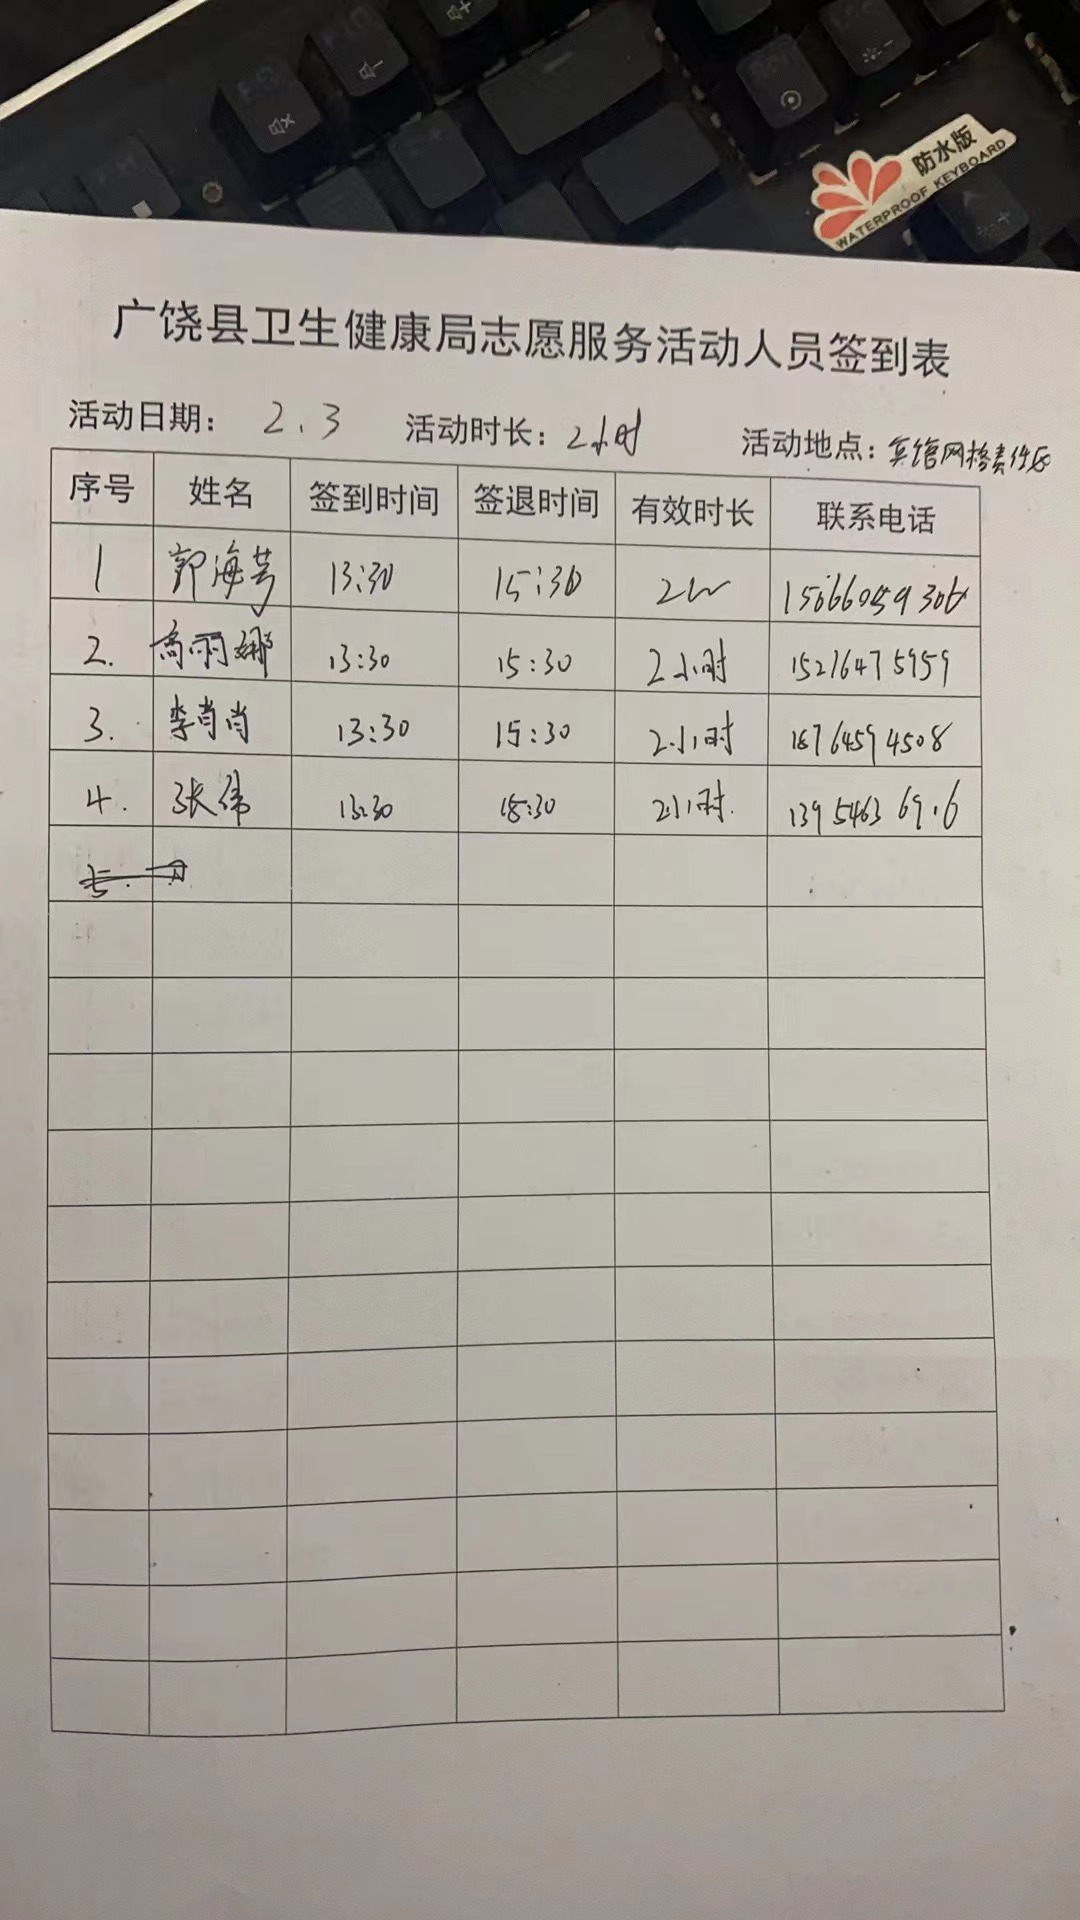 防水版
WATERPROOF KEYBOARD
广饶县卫生健康局志愿服务活动人员签到表
活动日期: 2.3 活动时长: 2小时 活动地点: 宾馆网格责任区
序号 姓名 签到时间 签退时间 有效时长 联系电话
1 郭海 13:30 15:30 2
2. 高丽娜 13:30 15:30 2小时 15276475959
3. 李肖肖 13:30 15:30 2小时 18764594508
4. 张伟 13:30 15:30 2小时.